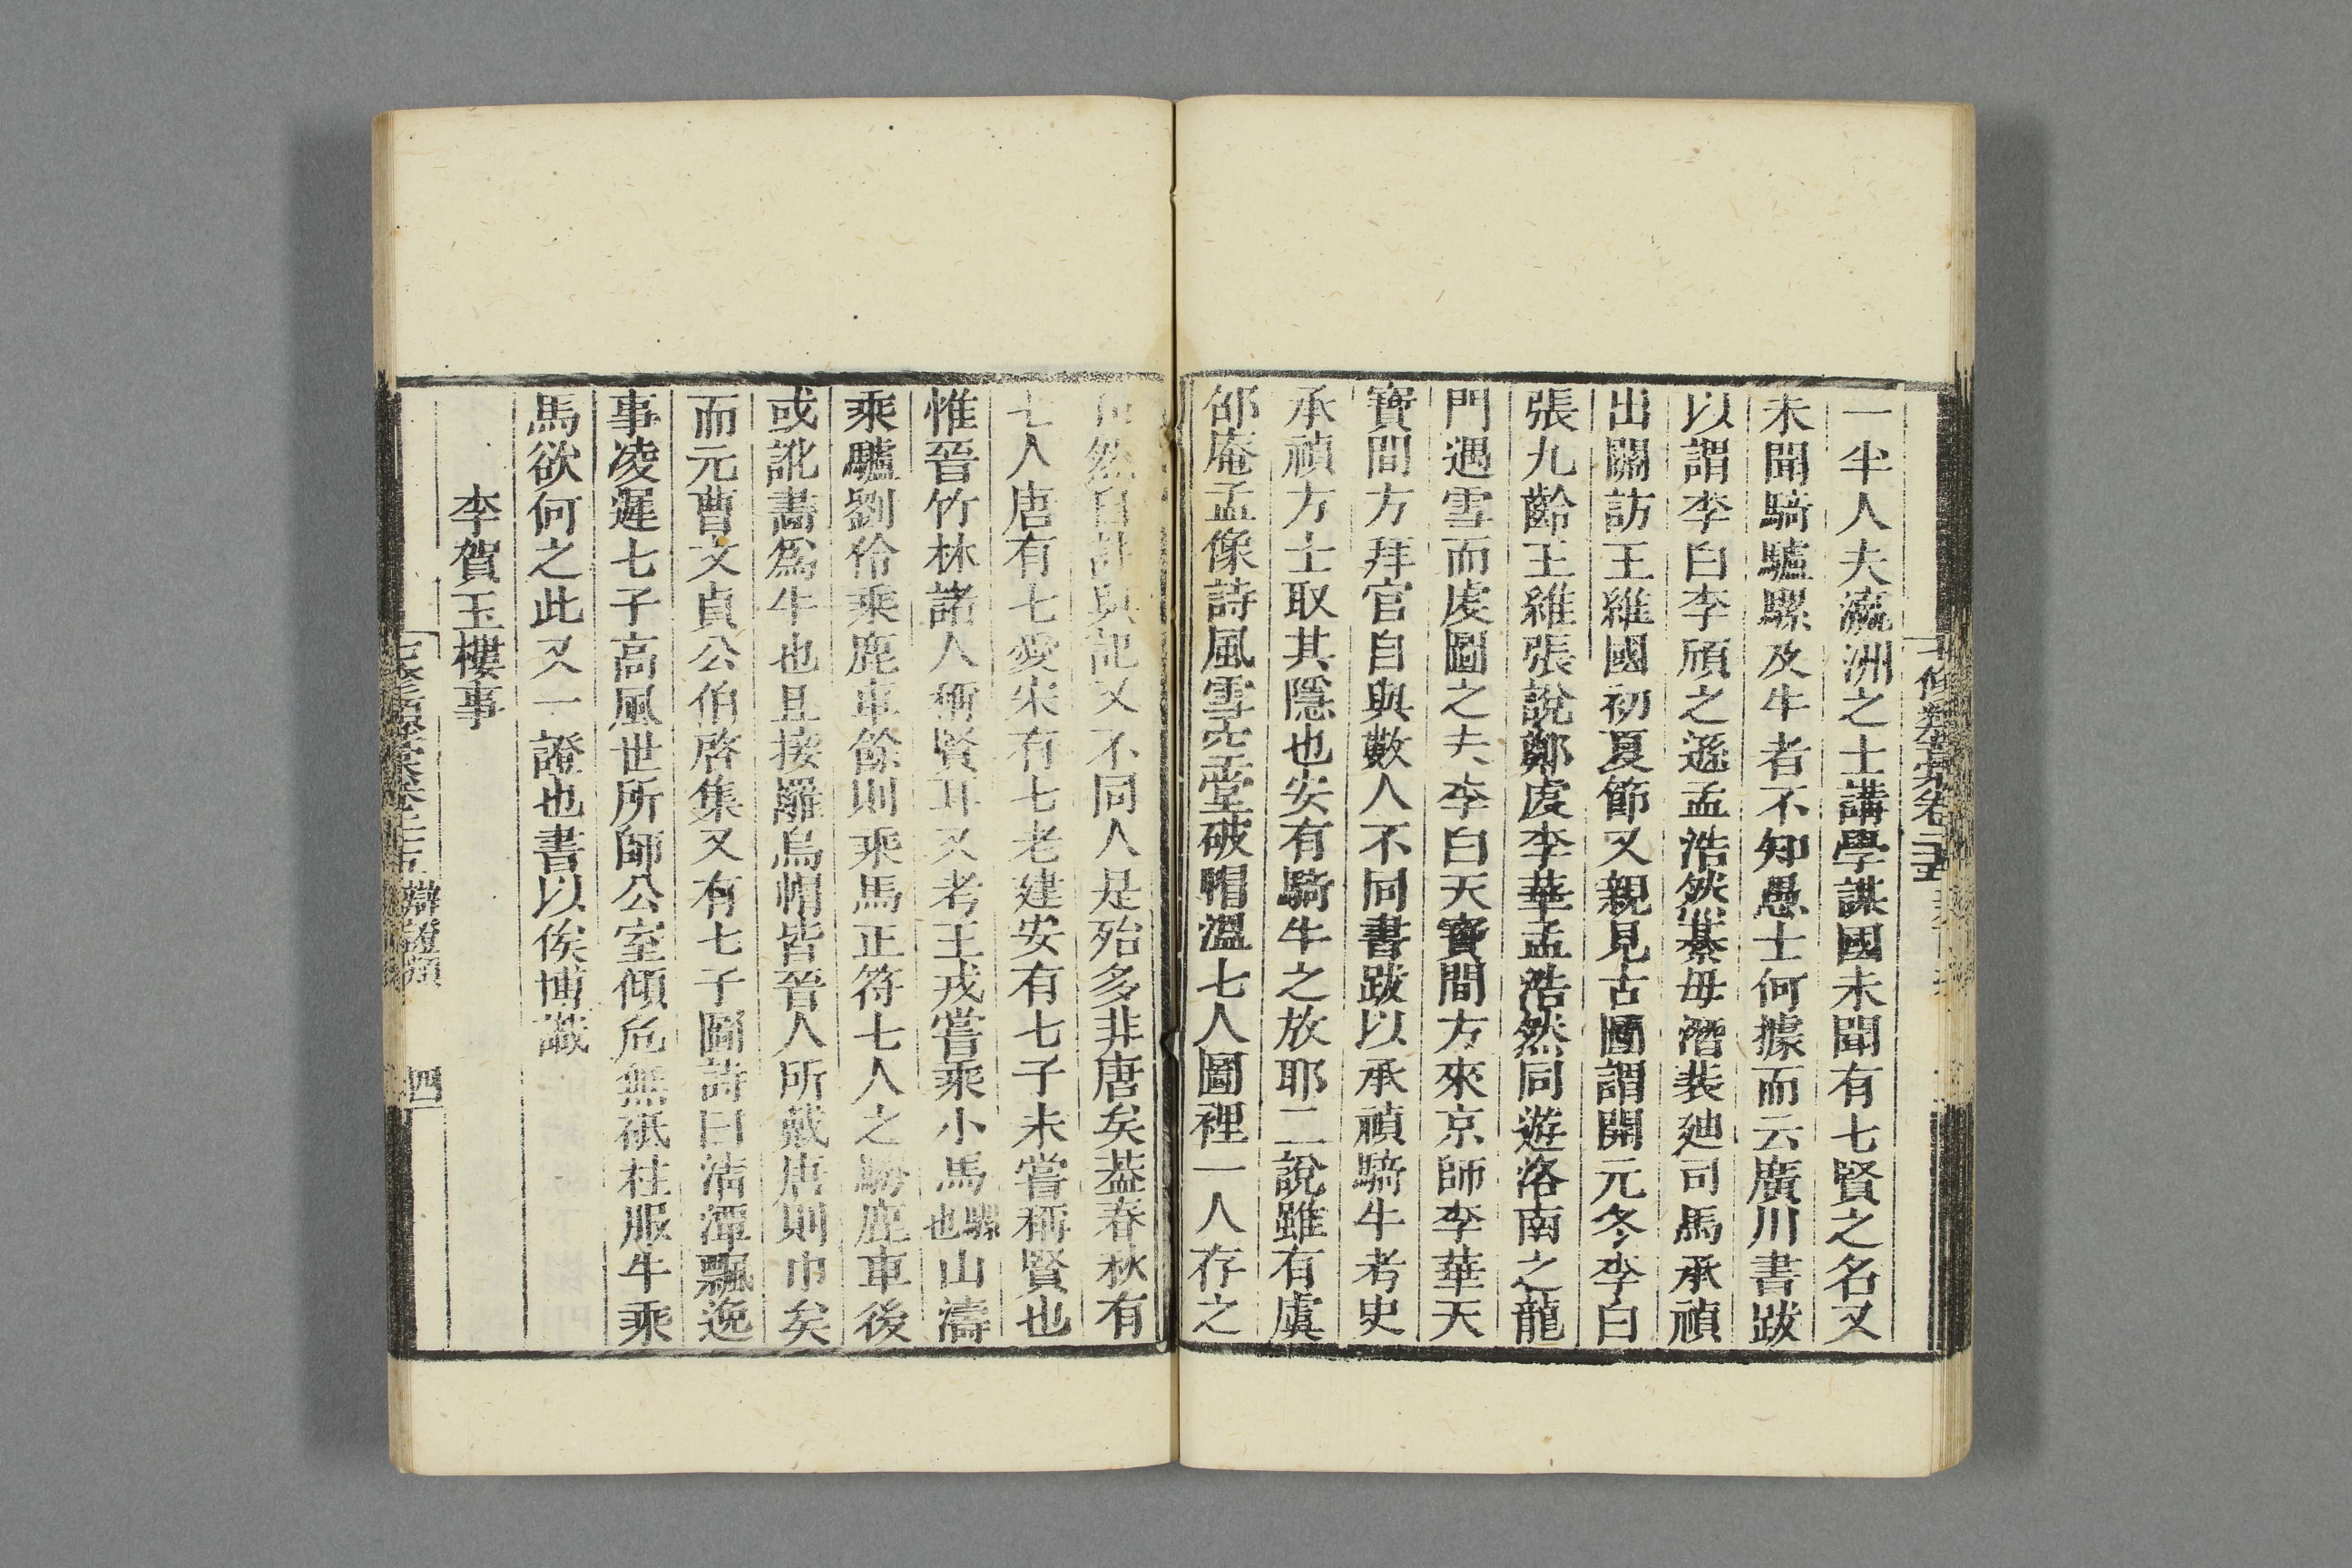 七修類藁卷二十五
一半人夫瀛洲之士講學謀國未聞有七賢之名又
未聞騎驢騾及牛者不知愚士何據而云廣川書跋
以謂李白李頎之遜孟浩然綦毋潛裴廸司馬承禎
出關訪王維國初夏節又親見古圖謂開元冬李白
張九齡王維張說鄭虔李華孟浩然同遊洛南之龍
門遇雪而虔圖之夫李白天寶間方來京師李華天
寶間方拜官自與數人不同書跋以承禎騎牛考史
承禎方士取其隱也安有騎牛之放耶二說雖有虞
邵庵孟像詩風雪空堂破帽溫七人圖裡一人存之
然自詩與記又不同人是殆多非唐矣葢春秋有
七人唐有七愛宋有七老建安有七子未嘗稱賢也
惟晉竹林諸人稱賢耳又考王戎嘗乘小馬騾也山濤
乘驢劉伶乘鹿車餘則乘馬正符七人之騎鹿車後
或訛畵爲牛也且接䍦烏帽皆晉人所戴唐則巾矣
而元曹文貞公伯啓集又有七子圖詩曰清潭飄逸
事凌遲七子高風世所師公室傾危無砥柱服牛乘
馬欲何之此又一證也書以俟博識
李賀玉樓事
辯證類
四